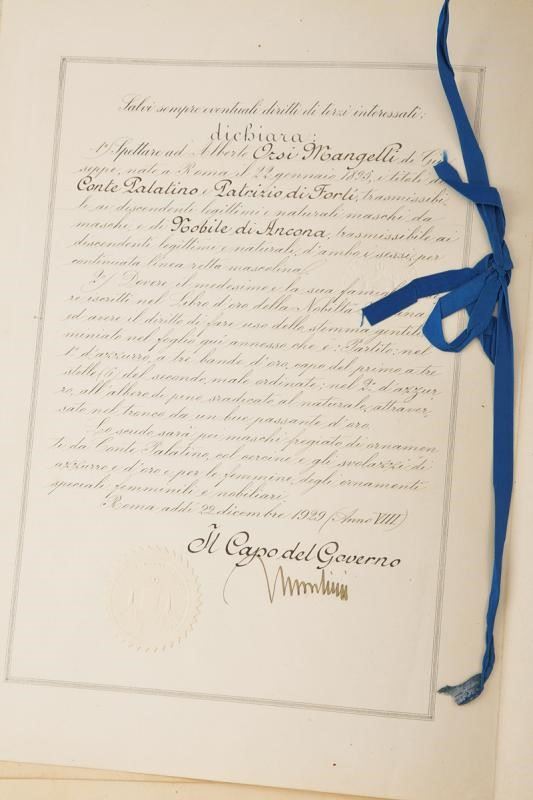 Salvi sempre eventuali diritti di terzi interessati;
dichiara:
1º) Spettare ad Alberto Orsi Mangelli di Giu
seppe, nato a Roma il 22 gennaio 1895, i titoli di
Conte Palatino e Patrizio di Forlì, trasmissibi
le ai discendenti legittimi e naturali maschi da
maschi, e di Nobile di Ancona, trasmissibile ai
discendenti legittimi e naturali, d'ambo i sessi, per
continuata linea retta mascolina.
2º) Dovere il medesimo e la sua famiglia
re iscritti nel Libro d'oro della Nobiltà
ed avere il diritto di fare uso dello stemma gentili
miniato nel foglio qui annesso che è: Partito; nel
1º d'azzurro, a tre bande d'oro, capo del primo a tre
stelle (6) del secondo, male ordinate; nel 2º d'azzur
ro, all'albero di pino sradicato al naturale, attraver
sato nel tronco da un bue passante d'oro.
Lo scudo sarà pei maschi fregiato di ornamen
ti da Conte Palatino, col cercine e gli svolazzi di
azzurro e d'oro e per le femmine degli ornamenti
speciali femminili e nobiliari.
Roma addì 22 dicembre 1929 (Anno VIII)
Il Capo del Governo
Mussolini